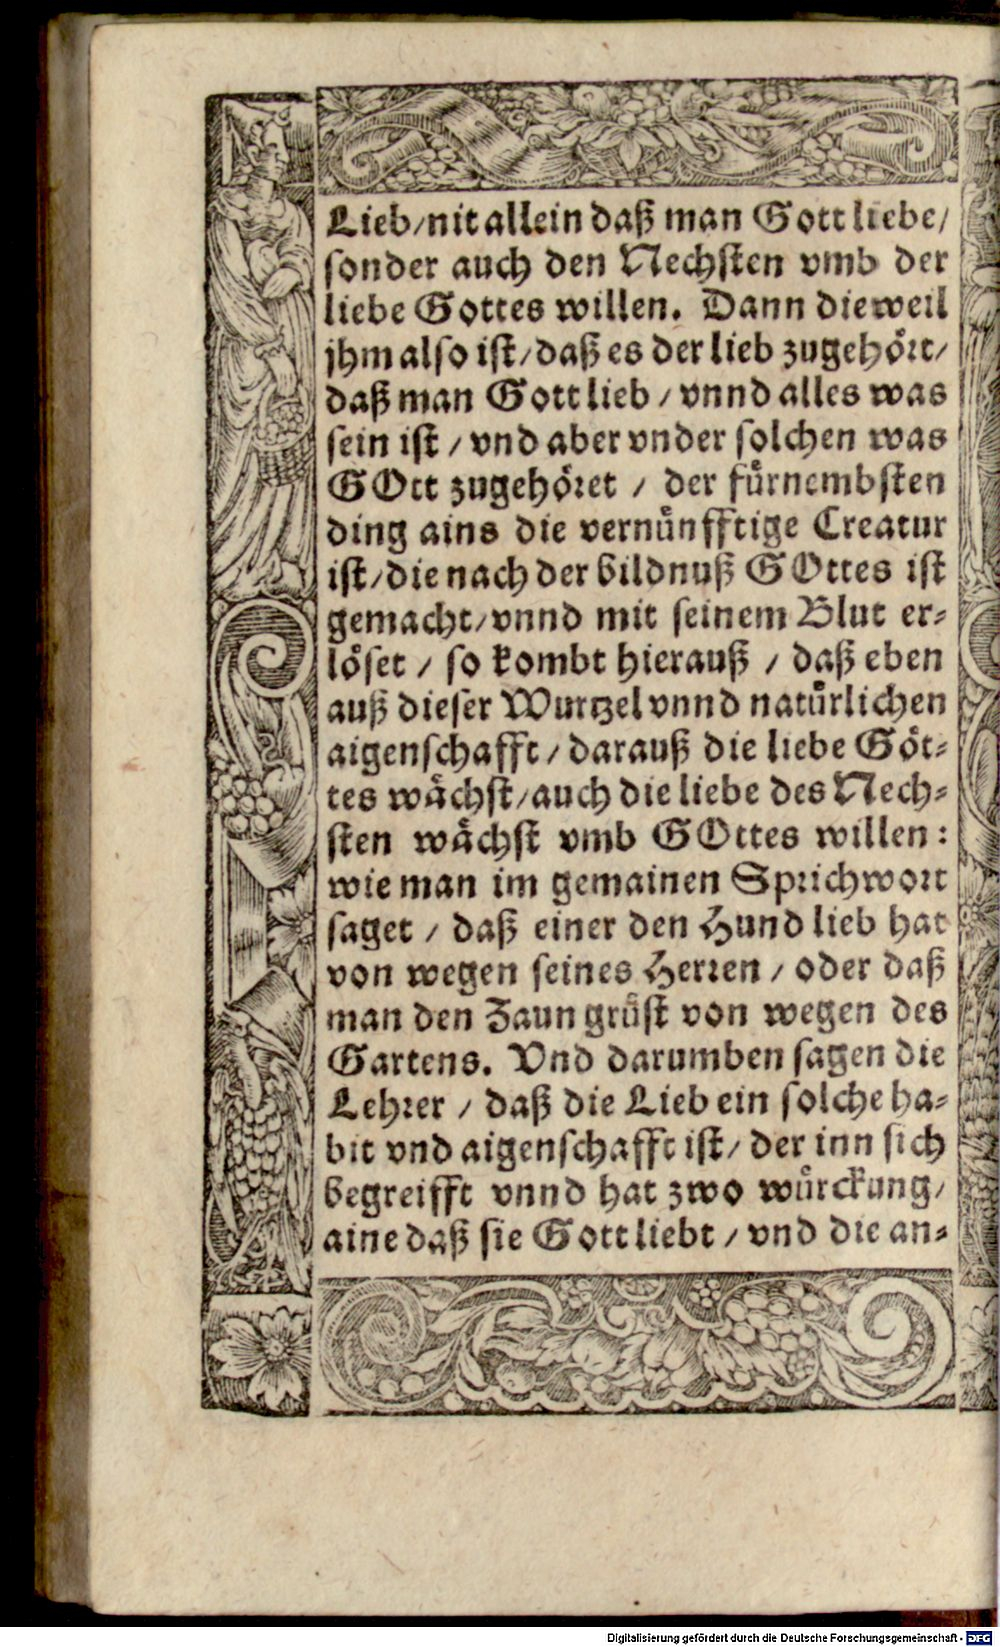 Lieb/nit allein daß man Gott liebe/
sonder auch den Nechsten vmb der
liebe Gottes willen. Dann dieweil
jhm also ist/daß es der lieb zugehört/
daß man Gott lieb / vnnd alles was
sein ist / vnd aber vnder solchen was
GOtt zugehöret / der fürnembsten
ding ains die vernünfftige Creatur
ist/die nach der bildnuß GOttes ist
gemacht/vnnd mit seinem Blut er-
löset / so kombt hierauß / daß eben
auß dieser Wurtzel vnnd natürlichen
aigenschafft/darauß die liebe Göt-
tes wächst/auch die liebe des Nech-
sten wächst vmb GOttes willen:
wie man im gemainen Sprichwort
saget / daß einer den Hund lieb hat
von wegen seines Herren / oder daß
man den Zaun grüst von wegen des
Gartens. Vnd darumben sagen die
Lehrer / daß die Lieb ein solche ha-
bit vnd aigenschafft ist/ der inn sich
begreifft vnnd hat zwo würckung/
aine daß sie Gott liebt / vnd die an-
Digitalisierung gefördert durch die Deutsche Forschungsgemeinschaft - DFG